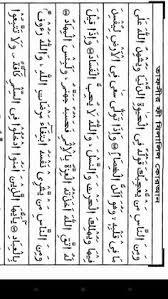 وَمِنَ النَّاسِ مَنْ يُّعْجِبُكَ قَوْلُهٗ فِى الْحَيٰوةِ الدُّنْيَا وَيُشْهِدُ اللّٰهَ عَلٰى
مَا فِىْ قَلْبِهٖ وَهُوَ اَلَدُّ الْخِصَامِ وَاِذَا تَوَلّٰى سَعٰى فِى الْاَرْضِ لِيُفْسِدَ
فِيْهَا وَيُهْلِكَ الْحَرْثَ وَالنَّسْلَ وَاللّٰهُ لَا يُحِبُّ الْفَسَادَ وَاِذَا قِيْلَ
لَهُ اتَّقِ اللّٰهَ اَخَذَتْهُ الْعِزَّةُ بِالْاِثْمِ فَحَسْبُهٗ جَهَنَّمُ وَلَبِئْسَ الْمِهَادُ
وَمِنَ النَّاسِ مَنْ يَّشْرِىْ نَفْسَهُ ابْتِغَآءَ مَرْضَاتِ اللّٰهِ وَاللّٰهُ رَءُوْفٌۢ
بِالْعِبَادِ يٰٓاَيُّهَا الَّذِيْنَ اٰمَنُوا ادْخُلُوْا فِى السِّلْمِ كَآفَّةً وَلَا تَتَّبِعُوْا